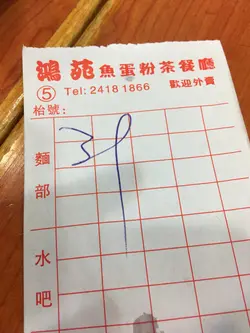 鴻苑魚蛋粉茶餐廳
⑤ Tel: 2418 1866 歡迎外賣
枱號:
麵部
水吧